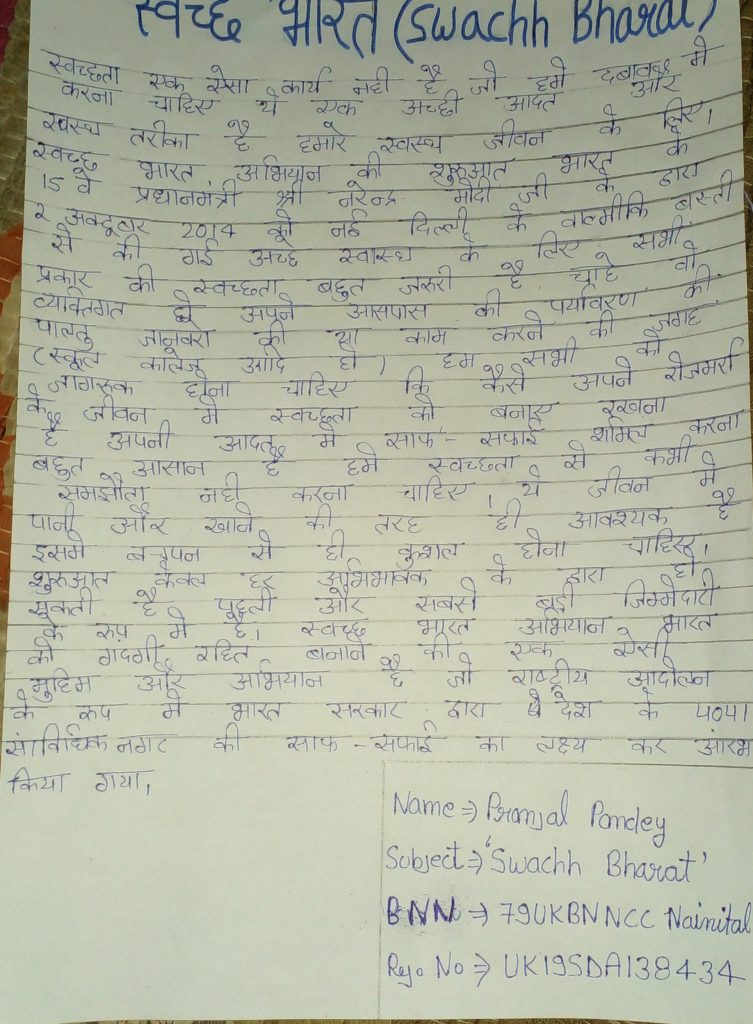 स्वच्छ भारत (Swachh Bharat)
स्वच्छता एक ऐसा कार्य नही है जो हमे दबाव मे
करना चाहिए ये एक अच्छी आदत और
स्वस्थ तरीका है हमारे स्वस्थ जीवन के लिए।
स्वच्छ भारत अभियान की शुरुआत भारत के
15 वे प्रधानमंत्री श्री नरेन्द्र मोदी जी के द्वारा
2 अक्टूबर 2014 को नई दिल्ली के वाल्मीकि बस्ती
से की गई अच्छे स्वास्थ के लिए सभी
प्रकार की स्वच्छता बहुत जरुरी है चाहे वो
व्यक्तिगत हो अपने आसपास की पर्यावरण की
पालतु जानवरो की या काम करने की जगह
(स्कूल कालेज आदि हो) हम सभी को
जागरुक होना चाहिए कि कैसे अपने रोजमर्रा
के जीवन मे स्वच्छता को बनाए रखना
है अपनी आदत मे साफ-सफाई शामिल करना
बहुत आसान है हमे स्वच्छता से कभी
समझौता नही करना चाहिए, ये जीवन मे
पानी और खाने की तरह ही आवश्यक है
इसमे बचपन से ही कुशल होना चाहिए,
शुरुआत केवल हर अभिभावक के द्वारा हो
सकती है पहली और सबसे बड़ी जिम्मेदारी
के रुप मे है। स्वच्छ भारत अभियान भारत
को गंदगी रहित बनाने की एक ऐसी
मुहिम और अभियान है जो राष्ट्रीय आंदोलन
के रुप मे भारत सरकार द्वारा देश के 4041
सांविधिक नगर की साफ-सफाई का लक्ष्य कर आंरभ
किया गया,
Name ⇒ Pranjal Pandey
Subject ⇒ 'Swachh Bharat'
BNN ⇒ 79UKBNNCC Nainital
Rego No ⇒ UK19SDA138434